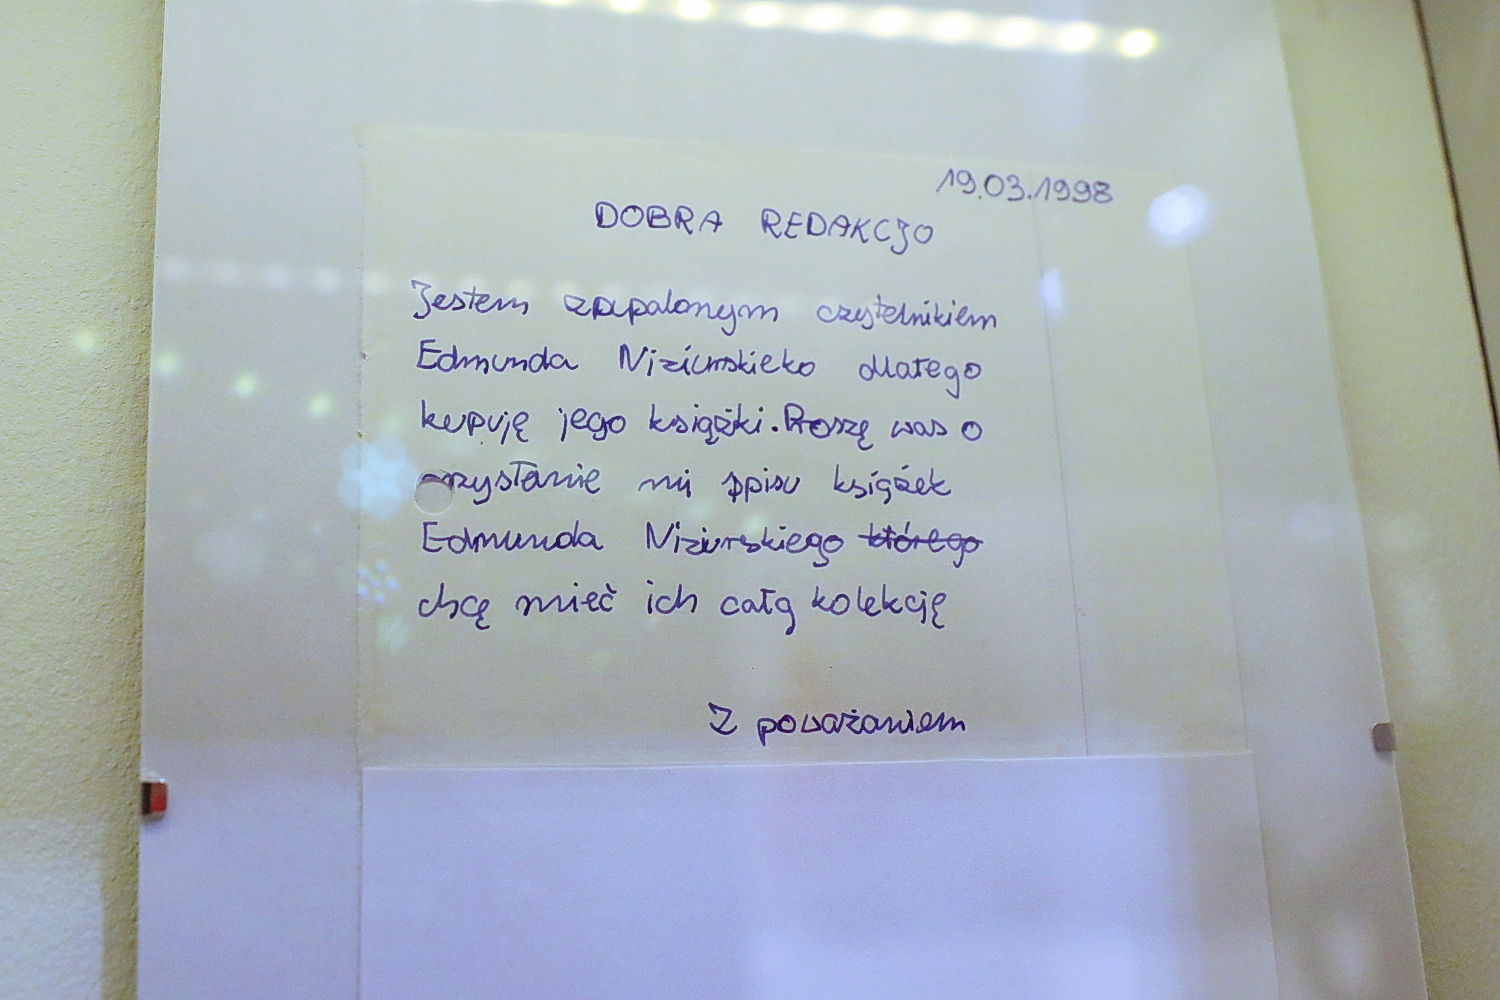 19.03.1998
DOBRA REDAKCJO
Jestem zapalonym czytelnikiem
Edmunda Niziurskieko dlatego
kupuję jego książki. Proszę was o
przysłanie mi spisu książek
Edmunda Niziurskiego którego
chcę mieć ich całą kolekcję
Z poważaniem